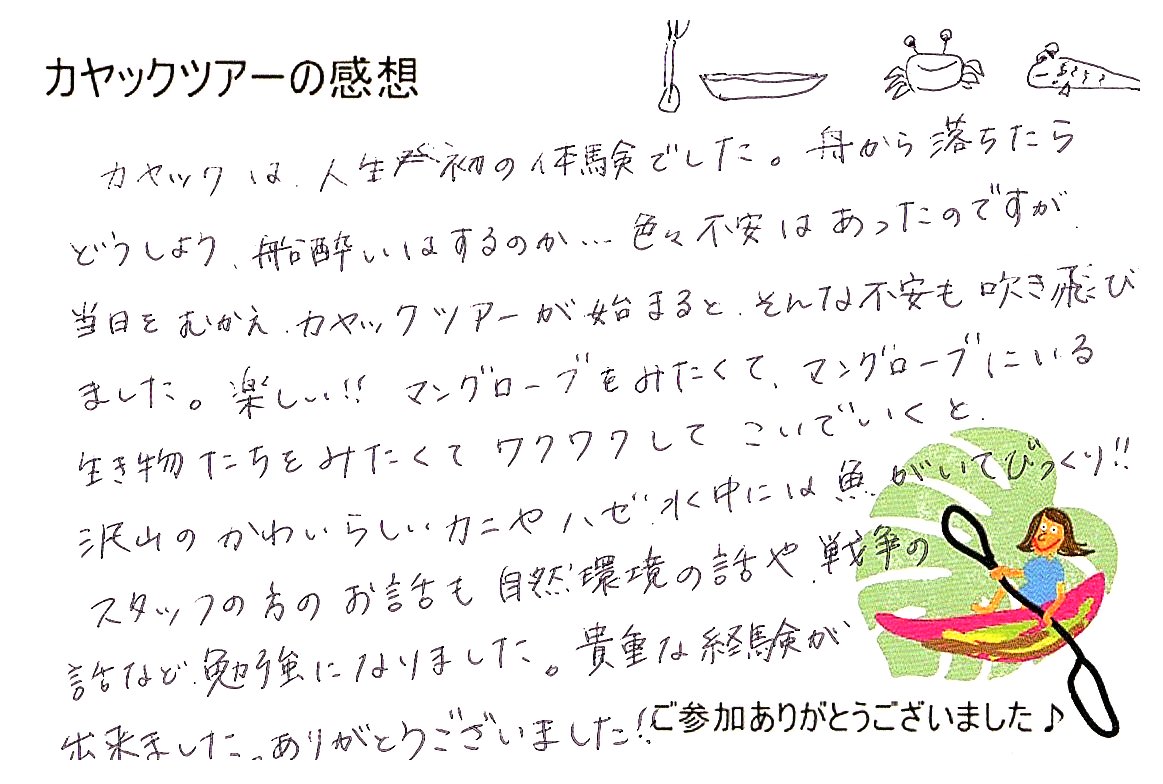 カヤックツアーの感想
カヤックは、人生初の体験でした。舟から落ちたら
どうしよう、船酔いはするのか…色々不安はあったのですが、
当日をむかえ、カヤックツアーが始まると、そんな不安も吹き飛び
ました。楽しい!! マングローブをみたくて、マングローブにいる
生き物たちをみたくてワクワクしてこいでいくと、
沢山のかわいらしいカニやハゼ、水中には魚がいてびっくり!!
スタッフの方のお話も自然環境の話や、戦争の
話など、勉強になりました。貴重な経験が
出来ました。ありがとうございました!!
ご参加ありがとうございました♪